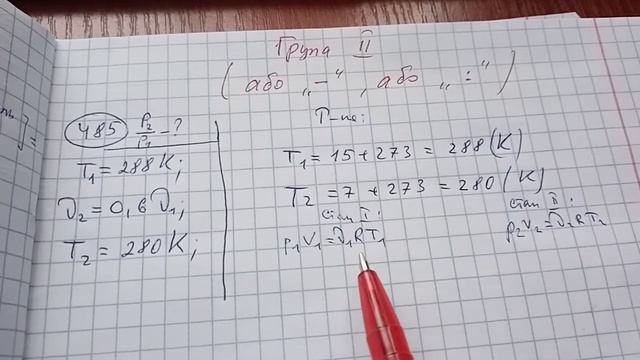 Група II
( або „–“, або „:“ )
485 P₂/P₁ – ?
T₁ = 288 K;
ν₂ = 0,6 ν₁;
T₂ = 280 K;
T₁ = 15 + 273 = 288 (K)
T₂ = 7 + 273 = 280 (K)
стан I:
p₁V₁ = ν₁RT₁
стан II:
p₂V₂ = ν₂RT₂